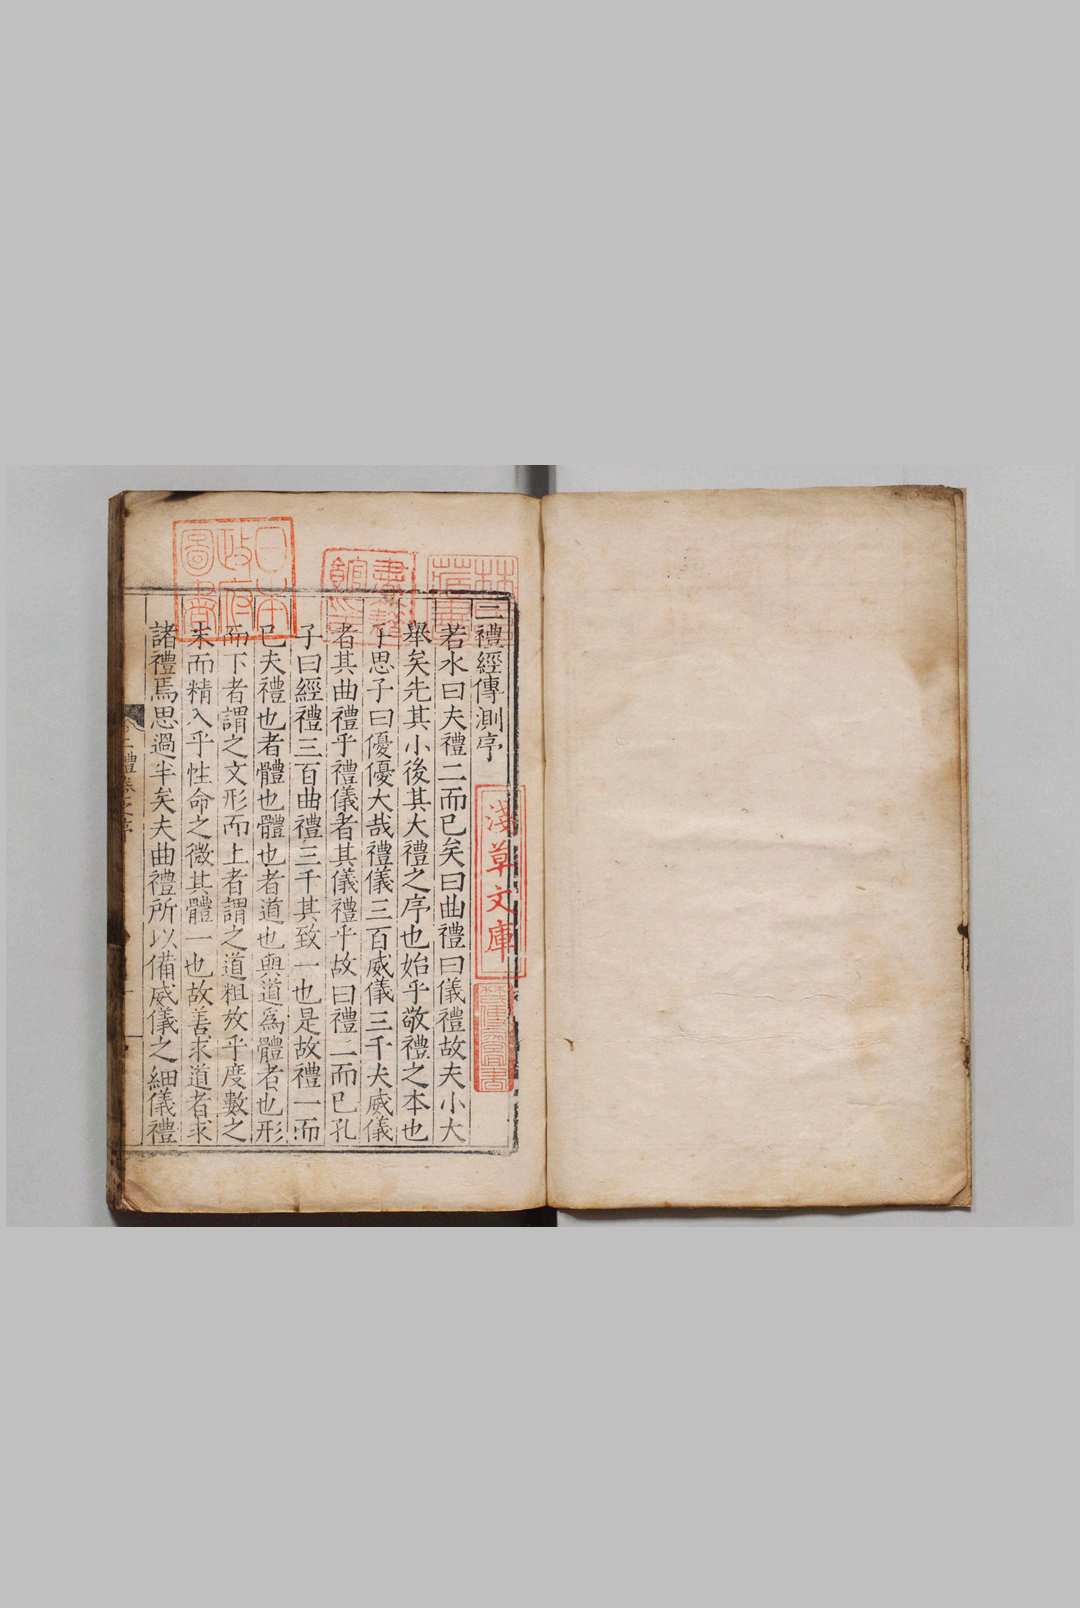 二禮經傳測序
若水曰夫禮二而已矣曰曲禮曰儀禮故夫小大
舉矣先其小後其大禮之序也始乎敬禮之本也
子思子曰優優大哉禮儀三百威儀三千夫威儀
者其曲禮乎禮儀者其儀禮乎故曰禮二而已孔
子曰經禮三百曲禮三千其致一也是故禮一而
已夫禮也者體也體也者道也與道為體者也形
而下者謂之文形而上者謂之道粗效乎度數之
末而精入乎性命之微其體一也故善求道者求
諸禮焉思過半矣夫曲禮所以備威儀之細儀禮
淺草文庫
日本
政府
圖書
林氏
藏書